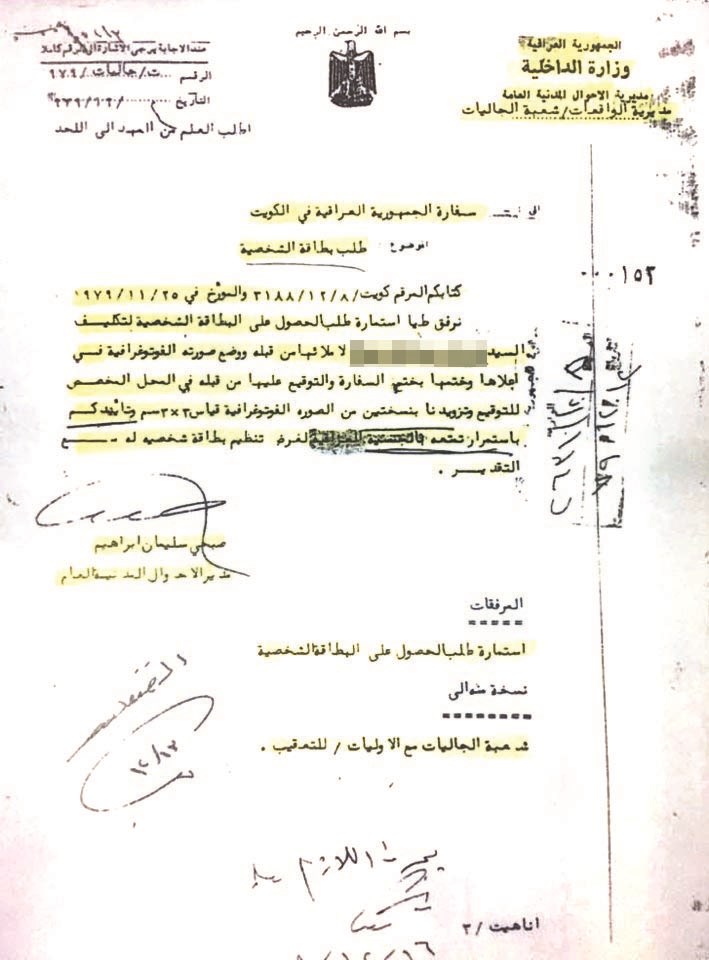 بسم الله الرحمن الرحيم
الجمهورية العراقية
وزارة الداخلية
مديرية الاحوال المدنية العامة
مديرية الواقعات/ شعبة الجاليات
عند الاجابة يرجى الاشارة الى الرقم كاملا
الرقم ت/جاليات/٩٧٩
التاريخ
اطلب العلم من المهد الى اللحد
سفارة الجمهورية العراقية في الكويت
الموضوع: طلب بطاقة الشخصية
٠٠٠١٥٢
كتابكم المرقم كويت/٣١٨٨/١٢/٨ والمؤرخ في ١٩٧٩/١١/٢٥
نرفق طيا استمارة طلب الحصول على البطاقة الشخصية لتكليف
السيد لاملائها من قبله ووضع صورته الفوتوغرافية في
اعلاها وختمها بختم السفارة والتوقيع عليها من قبله في المحل المخصص
للتوقيع وتزويدنا بنسختين من الصوره الفوتوغرافية قياس ٣×٣سم وتأييدكم
باستمرار تمتعه بالجنسية العراقية لغرض تنظيم بطاقة شخصيه له مع
التقدير .
صبحي سليمان ابراهيم
مدير الاحوال المدنية العام
المرفقات
استمارة طلب الحصول على البطاقة الشخصية
نسخة منه الى
شعبة الجاليات مع الاوليات / للتعقيب .
١٢/١٣
اللازم
اناهيت /٢
١٢/١٦